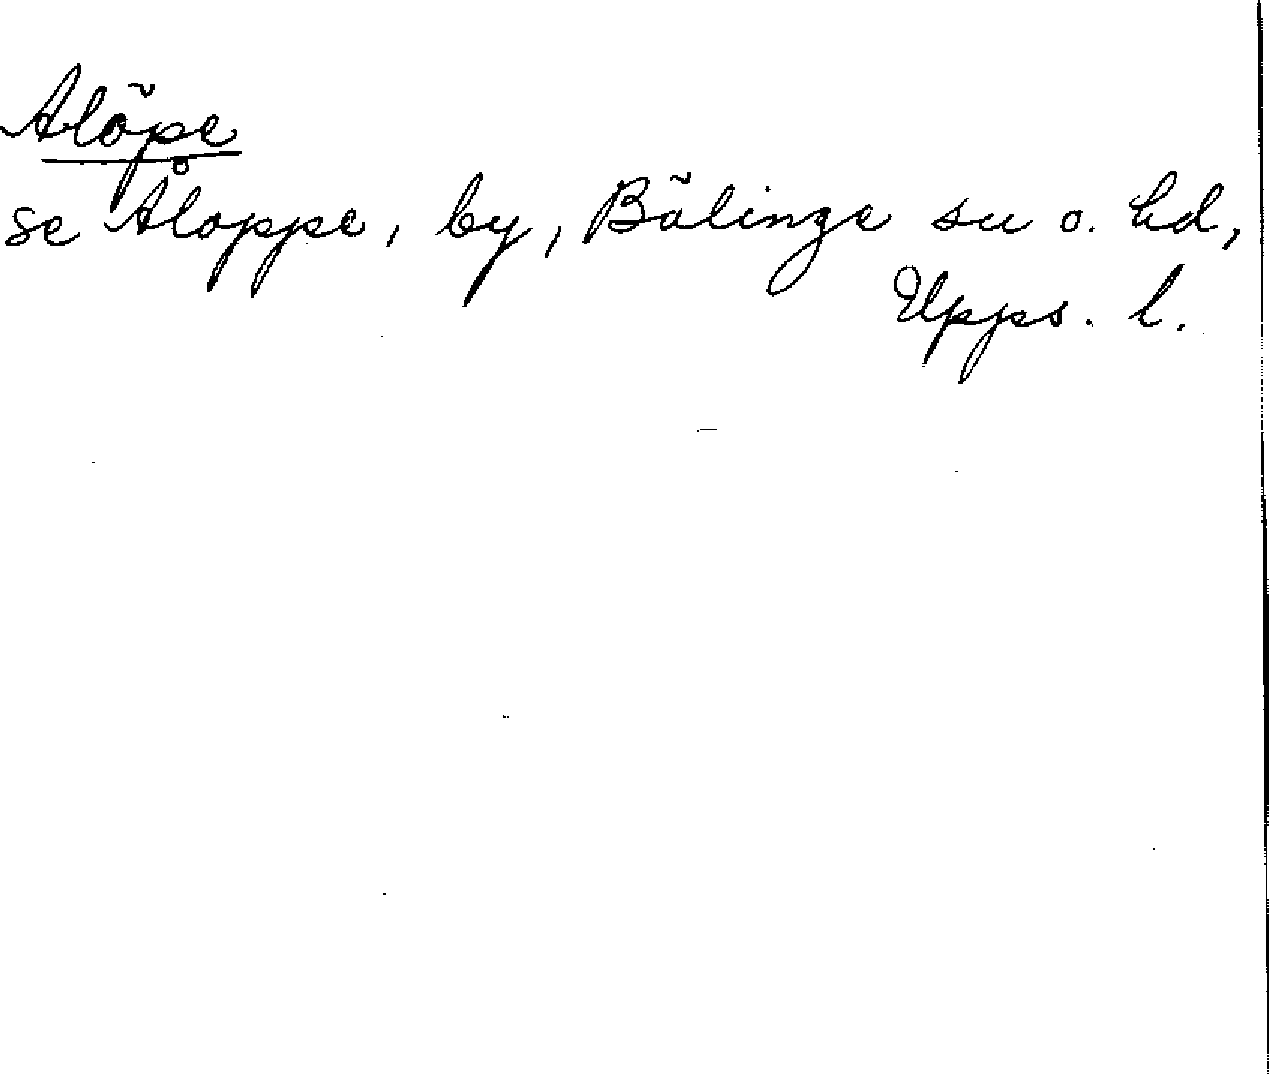 Alöpe
se Åloppe, by, Bälinge sn o. hd,
Upps. l.